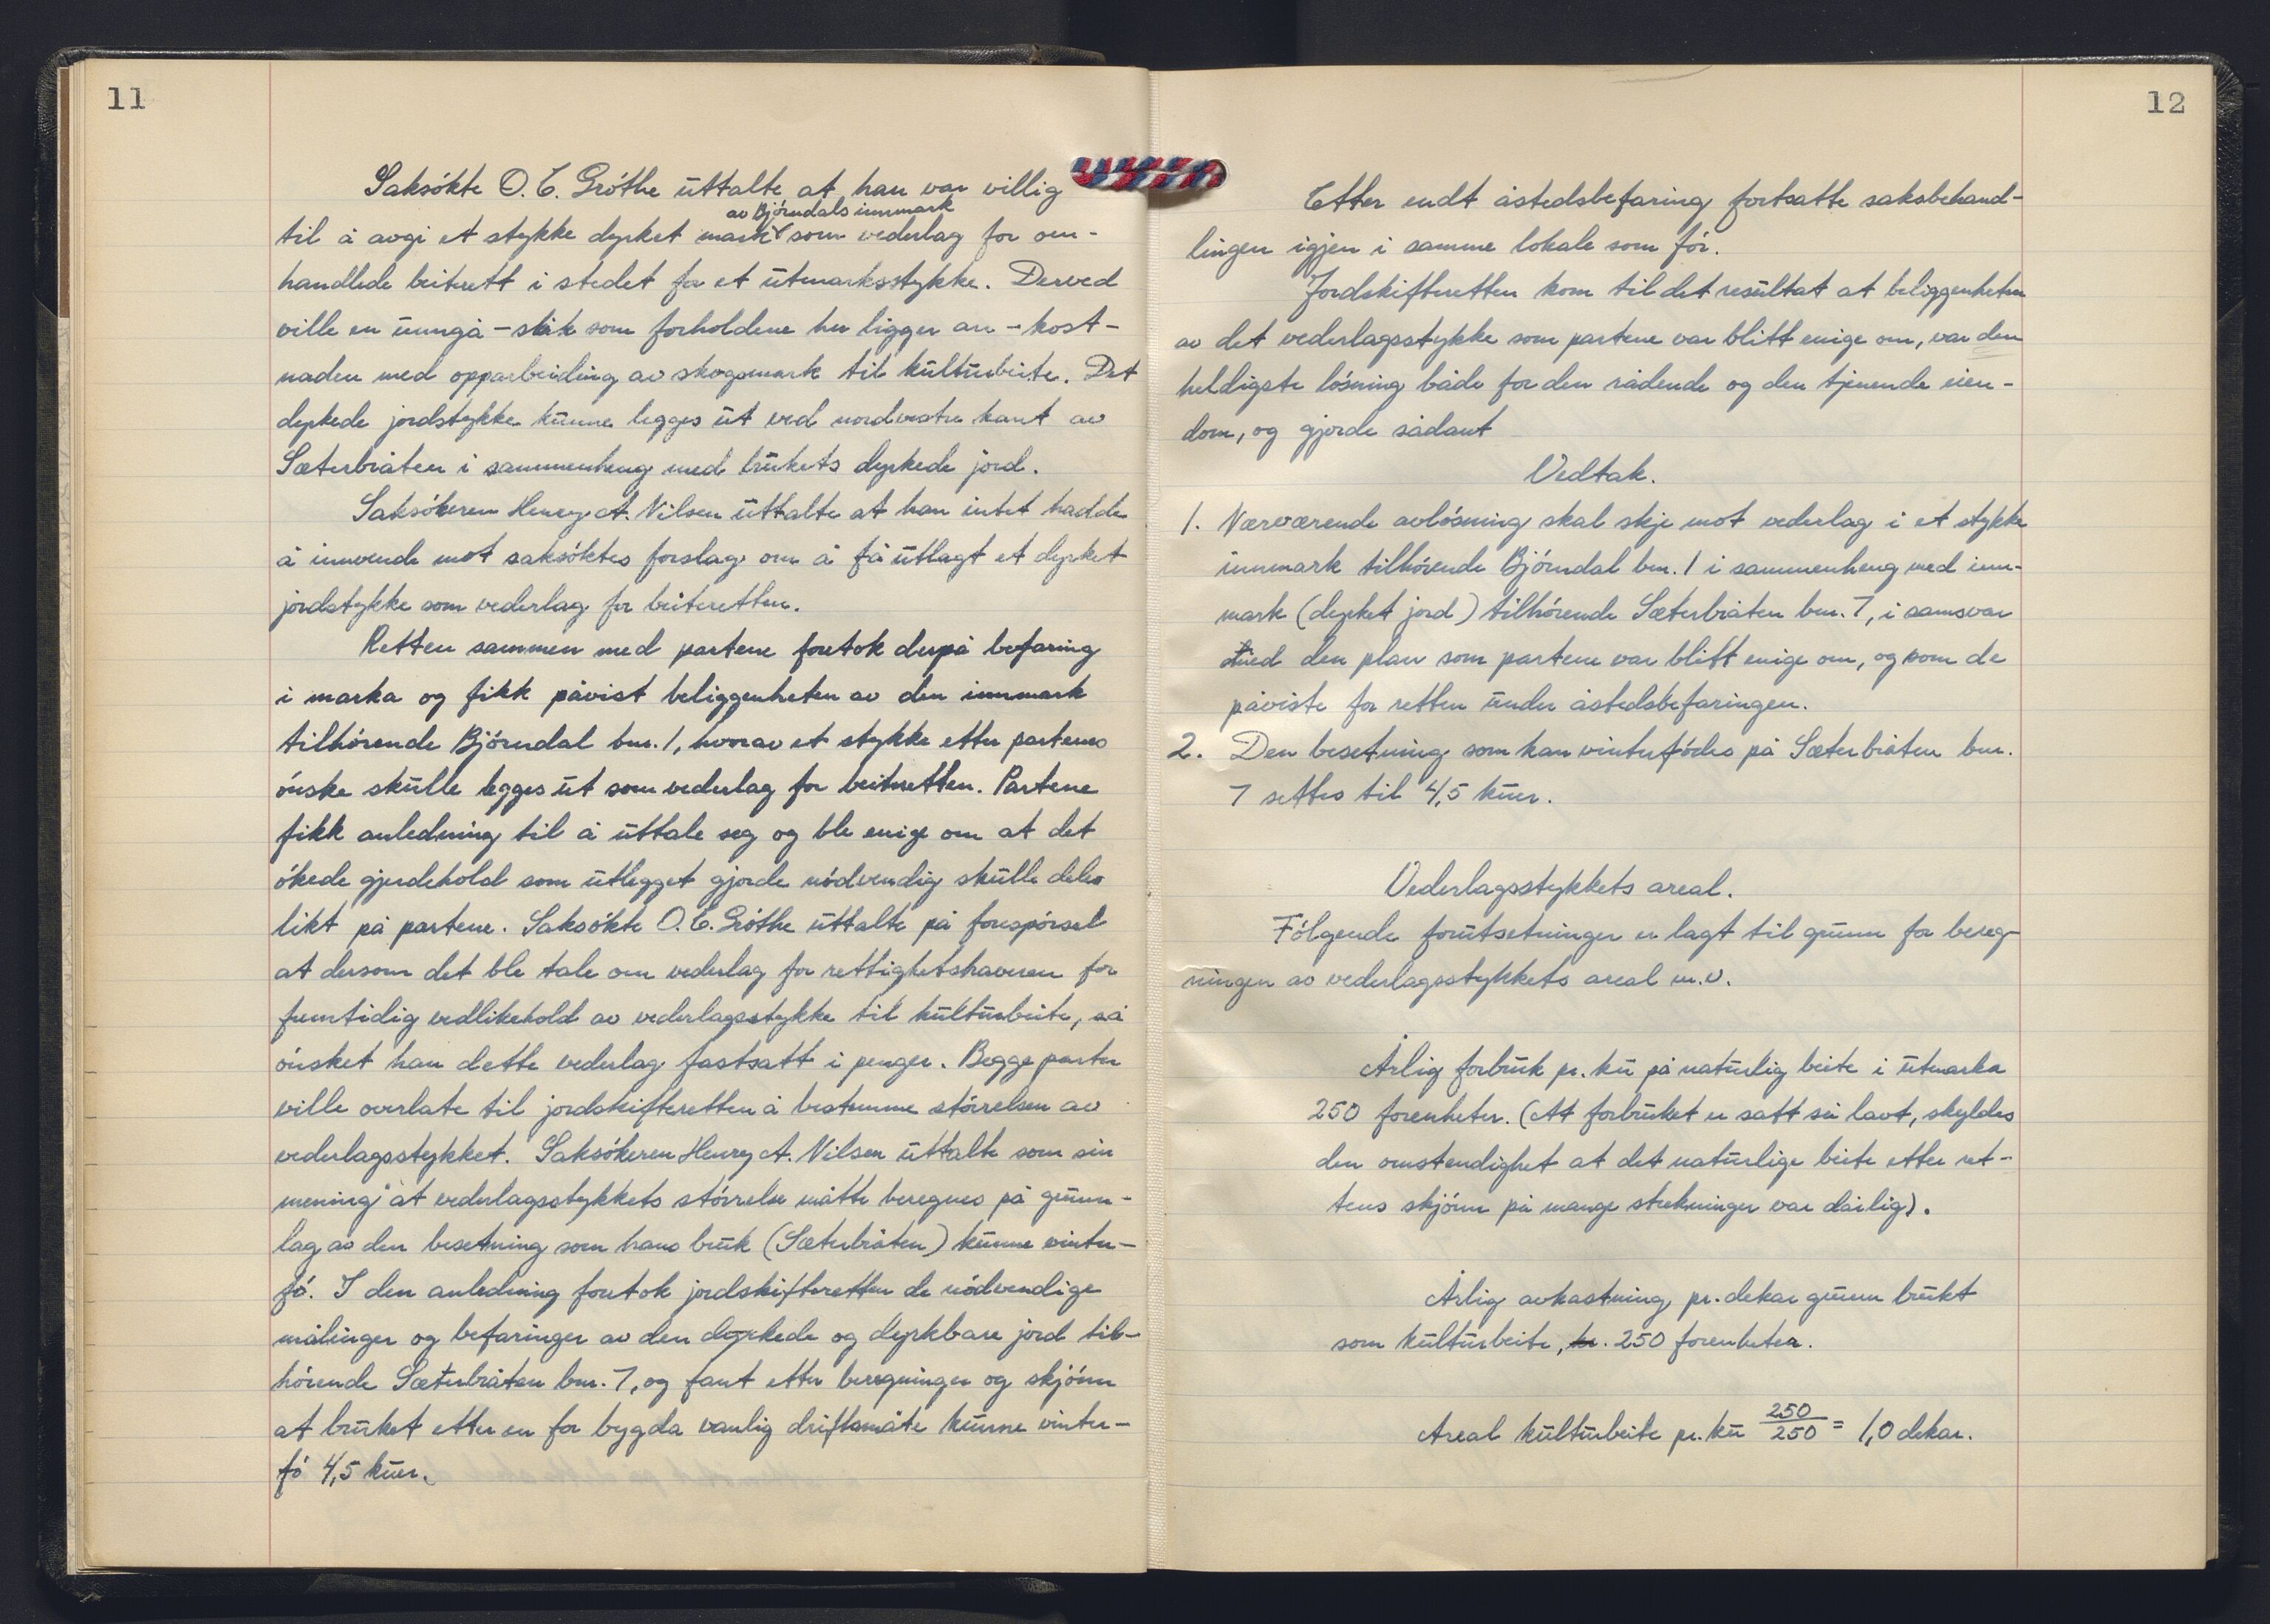 11
Saksökte O. C. Gröthe uttalte at han var villig
av Björndals innmark
til å avgi et stykke dyrket mark som vederlag for om-
handlede beiterett i stedet for et utmarksstykke. Derved
ville en unngå – slik som forholdene her ligger an – kost-
naden med opparbeiding av skogsmark til kulturbeite. Det
dyrkede jordstykke kunne legges ut ved nordvestre kant av
Sæterbråten i sammenheng med brukets dyrkede jord.
Saksökeren Henry A. Nilsen uttalte at han intet hadde
å innvende mot saksöktes forslag om å få utlagt et dyrket
jordstykke som vederlag for beiteretten.
Retten sammen med partene foretok derpå befaring
i marka og fikk påvist beliggenheten av den innmark
tilhörende Björndal bnr. 1, hvorav et stykke etter partenes
önske skulle legges ut som vederlag for beiteretten. Partene
fikk anledning til å uttale seg og ble enige om at det
ökede gjerdehold som utlegget gjorde nödvendig skulle deles
likt på partene. Saksökte O. C. Gröthe uttalte på forespörsel
at dersom det ble tale om vederlag for rettighetshaveren for
fremtidig vedlikehold av vederlagsstykke til kulturbeite, så
önsket han dette vederlag fastsatt i penger. Begge parter
ville overlate til jordskifteretten å bestemme störrelsen av
vederlagsstykket. Saksökeren Henry A. Nilsen uttalte som sin
mening at vederlagsstykkets störrelse måtte beregnes på grunn-
lag av den besetning som hans bruk (Sæterbråten) kunne vinter-
fö. I den anledning foretok jordskifteretten de nödvendige
målinger og befaringer av den dyrkede og dyrkbare jord til-
hörende Sæterbråten bnr. 7, og fant etter beregninger og skjönn
at bruket etter en for bygda vanlig driftsmåte kunne vinter-
fö 4,5 kuer.
12
Etter endt åstedsbefaring fortsatte saksbehand-
lingen igjen i samme lokale som för.
Jordskifteretten kom til det resultat at beliggenheten
av det vederlagsstykke som partene var blitt enige om, var den
heldigste lösning både for den rådende og den tjenende eien-
dom, og gjorde sådant
Vedtak.
1. Nærværende avlösning skal skje mot vederlag i et stykke
innmark tilhörende Björndal bnr. 1 i sammenheng med inn-
mark (dyrket jord) tilhörende Sæterbråten bnr. 7, i samsvar
med den plan som partene var blitt enige om, og som de
påviste for retten under åstedsbefaringen.
2. Den besetning som kan vinterfödes på Sæterbråten bnr.
7 settes til 4,5 kuer.
Vederlagsstykkets areal.
Fölgende forutsetninger er lagt til grunn for bereg-
ningen av vederlagsstykkets areal m.v.
Årlig forbruk pr. ku på naturlig beite i utmarka
250 forenheter. (At forbruket er satt så lavt, skyldes
den omstendighet at det naturlige beite etter ret-
tens skjönn på mange strekninger var dårlig).
Årlig avkastning pr. dekar grunn brukt
som kulturbeite, kr. 250 forenheter.
Areal kulturbeite pr. ku 250/250 = 1,0 dekar.